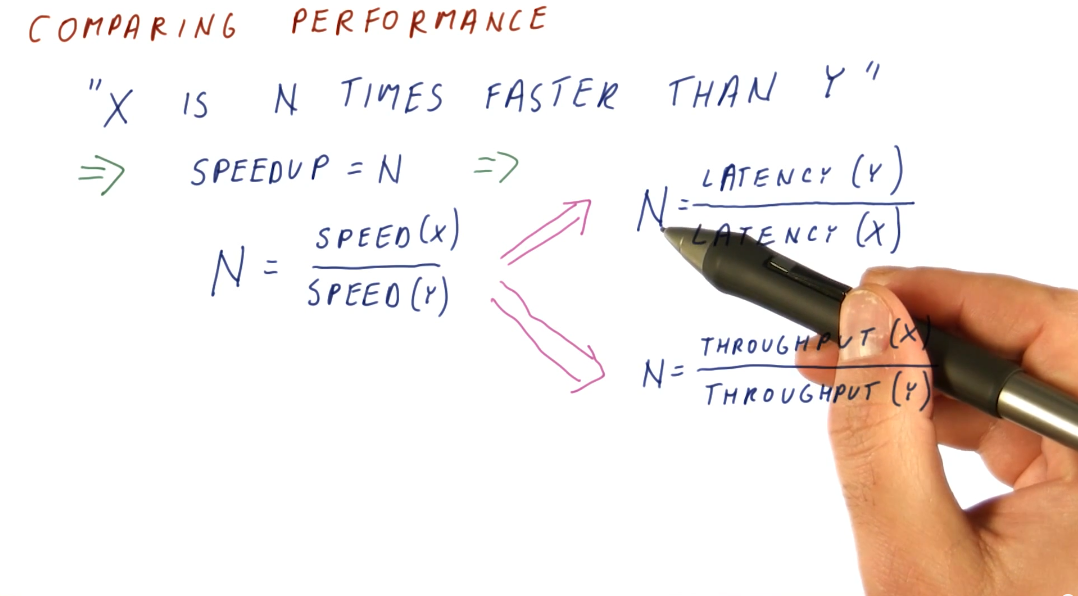 COMPARING PERFORMANCE
"X IS N TIMES FASTER THAN Y"
=> SPEEDUP = N =>
N = SPEED(X)
SPEED(Y)
N = LATENCY (Y)
LATENCY (X)
N = THROUGHPUT (X)
THROUGHPUT (Y)